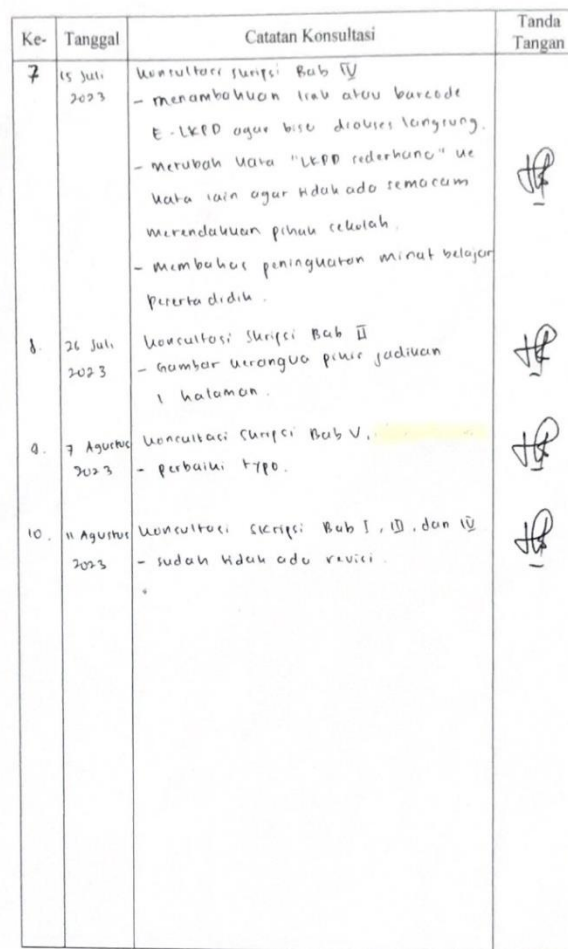 Ke- Tanggal Catatan Konsultasi Tanda Tangan
7 15 Juli 2023 Konsultasi skripsi Bab IV
- menambahkan link atau barcode
E-LKPD agar bisa diakses langsung.
- merubah kata "LKPD sederhana" ke
kata lain agar tidak ada semacam
merendahkan pihak sekolah.
- membahas peningkatan minat belajar
peserta didik.
8. 26 Juli 2023 Konsultasi Skripsi Bab II
- Gambar kerangka pikir jadikan
1 halaman.
9. 7 Agustus 2023 Konsultasi skripsi Bab V.
- perbaiki typo.
10. 11 Agustus 2023 Konsultasi skripsi Bab I, III, dan IV
- sudah tidak ada revisi.